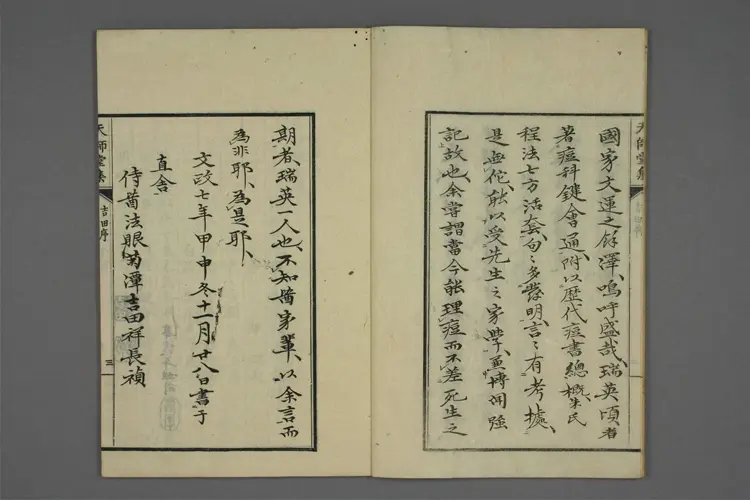 國家文運之餘澤、嗚呼盛哉、瑞英頃者
著痘科鍵會通、附以歷代痘書總概、朱氏
程法七方活套、句々多發明、言々有考據、
是無佗、能以受先生之家學、並博聞強
記故也、余嘗謂當今能理痘而不差死生之
天師堂集
期者、瑞英一人也、不知醫家輩、以余言而
為非耶、為是耶、
文政七年甲申冬十一月廿八日書于
直舍
侍醫法眼菊潭吉田祥長禎
天師堂集
吉田序
三